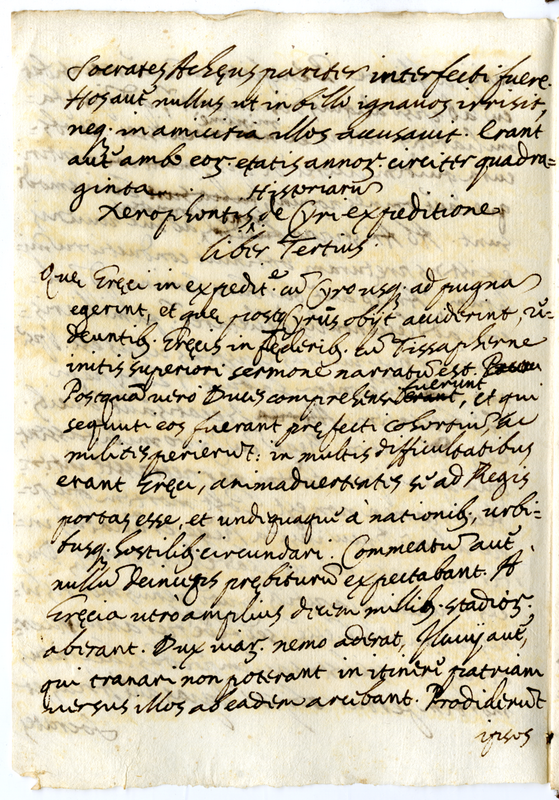 Socrates Achęus pariter interfecti fuere.
Hos aut̃ nullus ut in bello ignavos irrisit,
neq. in amicitia illos accusavit. Erant
aut̃ ambo eoꝝ ętatis annoꝝ circiter quadra=
ginta
Historiarũ
Xenophontis de Cyri expeditione
liber Tertius.
Quę Gręci in expedit.e cũ Cyro usq. ad pugnã
egerint, et quę postq̃ Cyrus obijt acciderint,
euntib. Gręcis in fęderib. cũ Tissapherne
initis superiori sermone narratũ est.
Postquã vero Duces comprehensi fuerunt, et qui
sequuti eos fuerant pręfecti cohortiũ ac
milites perierũt: in multis difficultatibus
erant Gręci, animadvertentes se ad Regis
portas esse, et undiquaque à nationib., urbi=
busq. hostilib. circundari. Commeatũ aut̃
nullũ deinceps prębiturũ expectabant. A
Gręcia utrò amplius decem millib. stadioꝝ
aberant. Dux viaꝝ nemo aderat, fluvij aut̃,
qui tranari non poterant in itinere patriam
versus illos ab eadem arcebant. Prodiderũt
ipsos